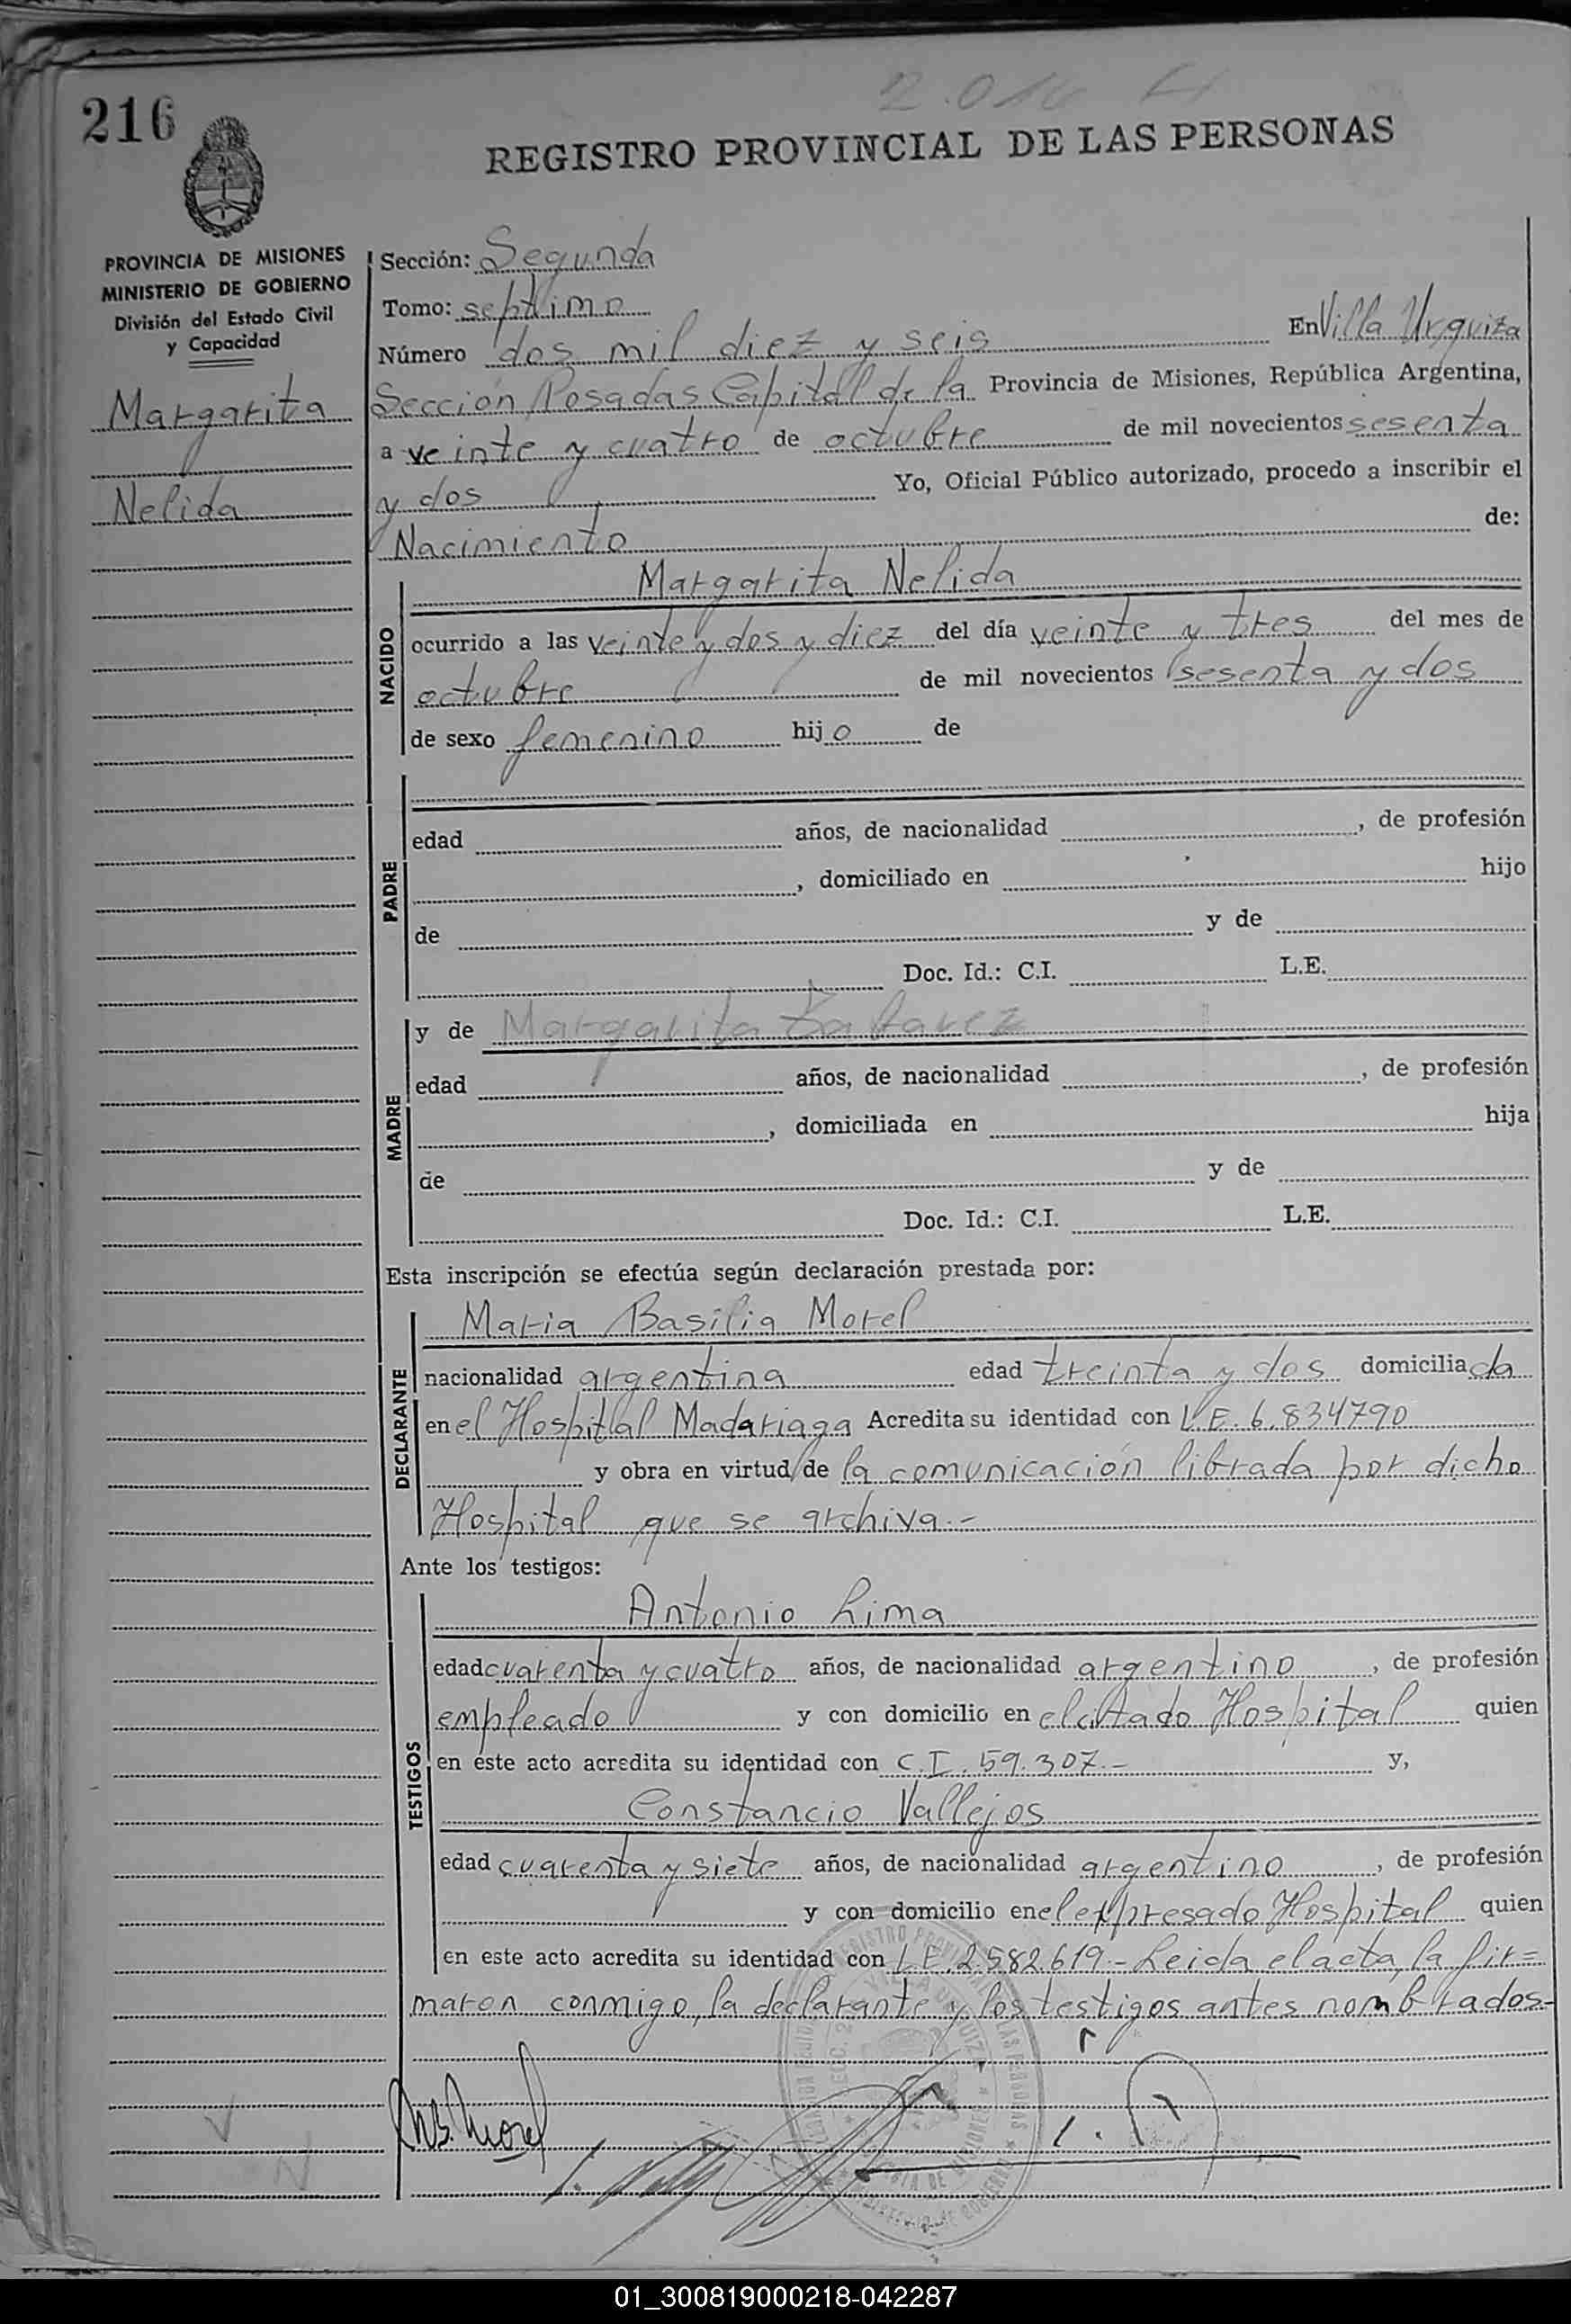 216
REGISTRO PROVINCIAL DE LAS PERSONAS
PROVINCIA DE MISIONES
MINISTERIO DE GOBIERNO
División del Estado Civil
y Capacidad
Margarita
Nelida
Sección: Segunda
Tomo: septimo
Número dos mil diez y seis En Villa Urquiza
Sección Posadas Capital de la Provincia de Misiones, República Argentina,
a veinte y cuatro de octubre de mil novecientos sesenta
y dos Yo, Oficial Público autorizado, procedo a inscribir el
Nacimiento de:
NACIDO
Margarita Nelida
ocurrido a las veinte y dos y diez del día veinte y tres del mes de
octubre de mil novecientos sesenta y dos
de sexo femenino hijo de
PADRE
edad años, de nacionalidad , de profesión
, domiciliado en hijo
de y de
Doc. Id.: C.I. L.E.
MADRE
y de Margarita
edad años, de nacionalidad , de profesión
, domiciliada en hija
de y de
Doc. Id.: C.I. L.E.
Esta inscripción se efectúa según declaración prestada por:
DECLARANTE
Maria Basilia Morel
nacionalidad argentina edad treinta y dos domiciliada
en el Hospital Madariaga Acredita su identidad con L.E. 6.834790
y obra en virtud de la comunicación librada por dicho
Hospital que se archiva.-
Ante los testigos:
TESTIGOS
Antonio Lima
edad cuarenta y cuatro años, de nacionalidad argentino , de profesión
empleado y con domicilio en el citado Hospital quien
en este acto acredita su identidad con C.I. 59.307.- y,
Constancio Vallejos
edad cuarenta y siete años, de nacionalidad argentino , de profesión
y con domicilio en el expresado Hospital quien
en este acto acredita su identidad con L.E. 2.582.619.- Leida el acta, la fir=
maron conmigo, la declarante y los testigos antes nombrados-
MB. Morel
01_300819000218-042287